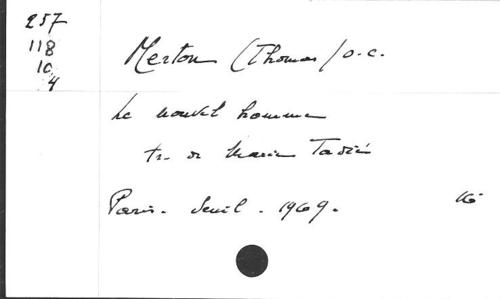 257
118
10
4
Merton (Thomas) o.c.
Le nouvel homme
tr. de Marie Tadié
Paris. Seuil. 1969.